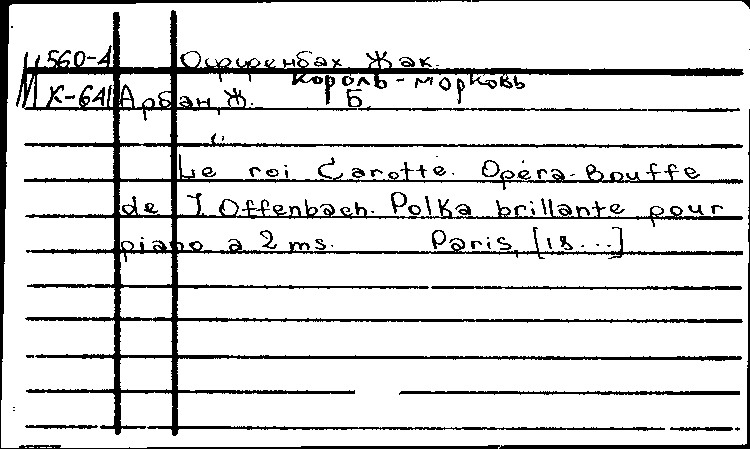 М 560-4 Оффенбах Жак.
Король-морковь
К-641 Арбан, Ж. Б.
Le roi Carotte. Opéra-Bouffe
de J. Offenbach. Polka brillante pour
piano a 2 ms. Paris, [18...]